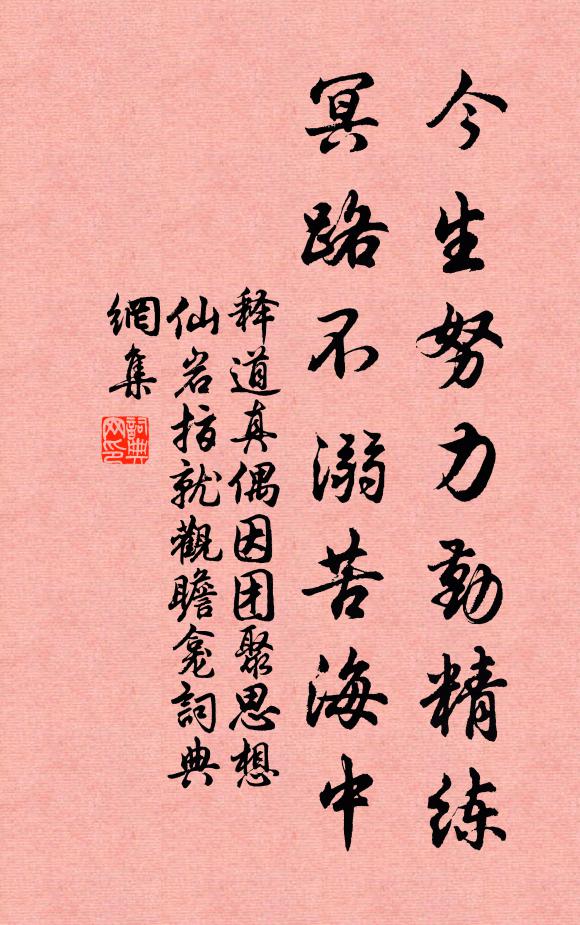 今生努力勤精练
冥路不溺苦海中
释道真偶因团聚思想
仙岩指就觀瞻寃詞典
網集
詞典網印